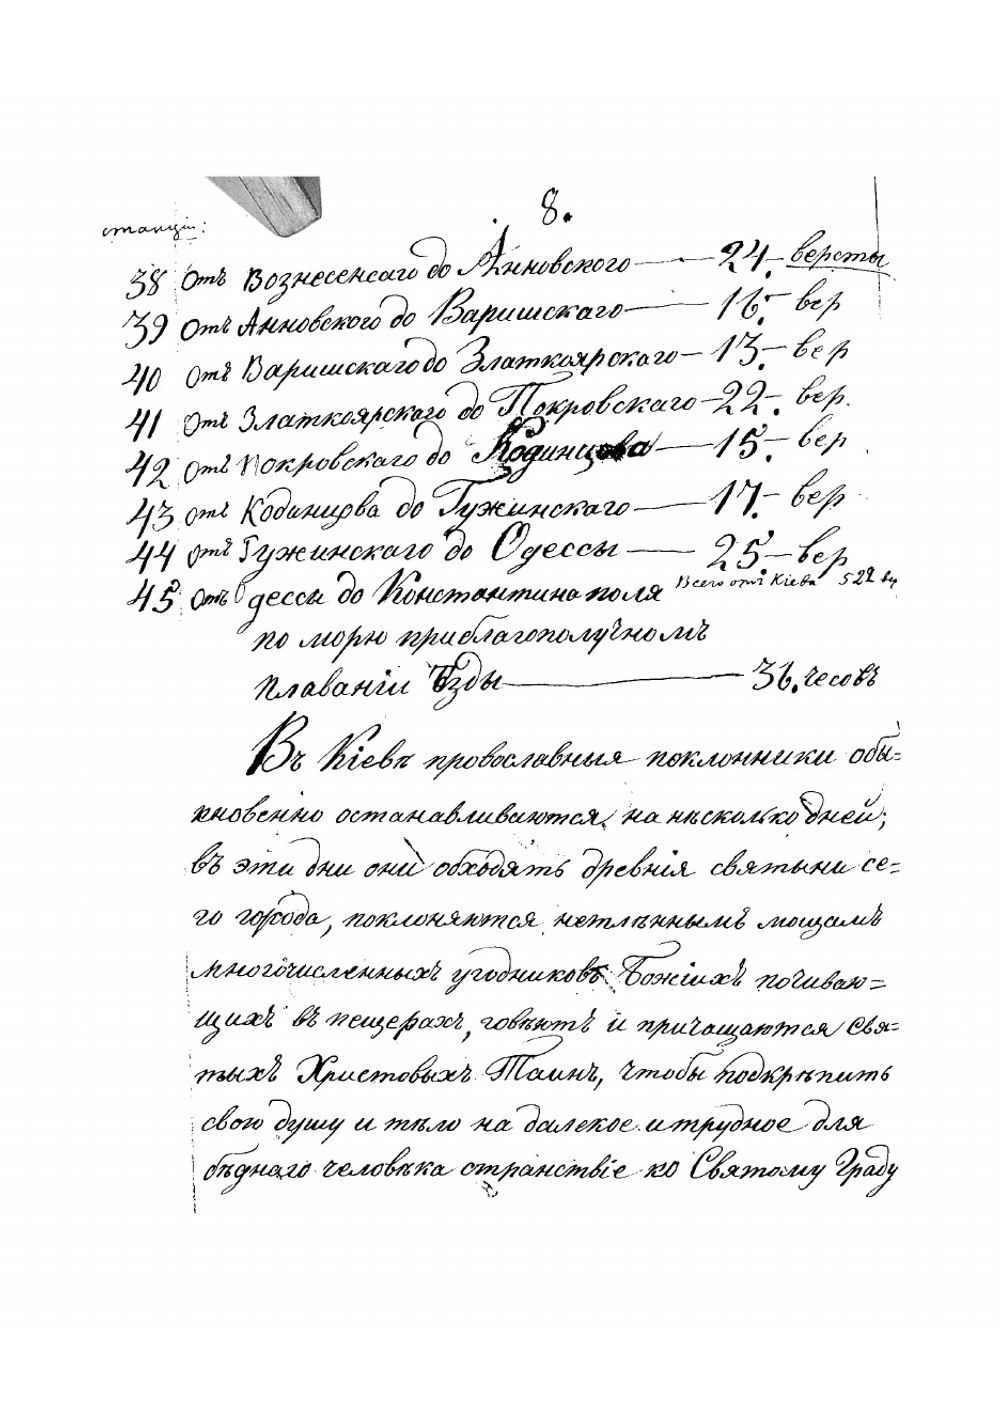 8.
станціи:
38 Отъ Вознесенсаго до Анновского — 24. версты
39 Отъ Анновского до Варишскаго — 16. вер
40 Отъ Варишскаго до Златкоярского — 13. вер
41 Отъ Златкоярскаго до Покровскаго — 22. вер.
42 Отъ Покровскаго до Кодинцова — 15. вер
43 отъ Кодинцова до Гужинскаго — 17. вер
44 отъ Гужинскаго до Одессы — 25. — вер
Всего отъ Кіева 522 вер
45 отъ Одессы до Константинополя
по морю приблагополучномъ
плаваніи Ѣзды — 36. часовъ
Въ Кіевѣ провославныя поклонники обы=
кновенно останавливаются, на нѣсколько дней;
въ эти дни они обходятъ древнія святыни се=
го города, поклоняются нетлѣннымъ мощамъ
многочисленныхъ угодниковъ Божіихъ почиваю=
щихъ въ пещерахъ, говѣютъ и причащаются Свя=
тыхъ Христовыхъ Таинъ, чтобы подкрѣпить
свою душу и тѣло на далекое и трудное для
бѣднаго человѣка странствіе ко Святому Граду